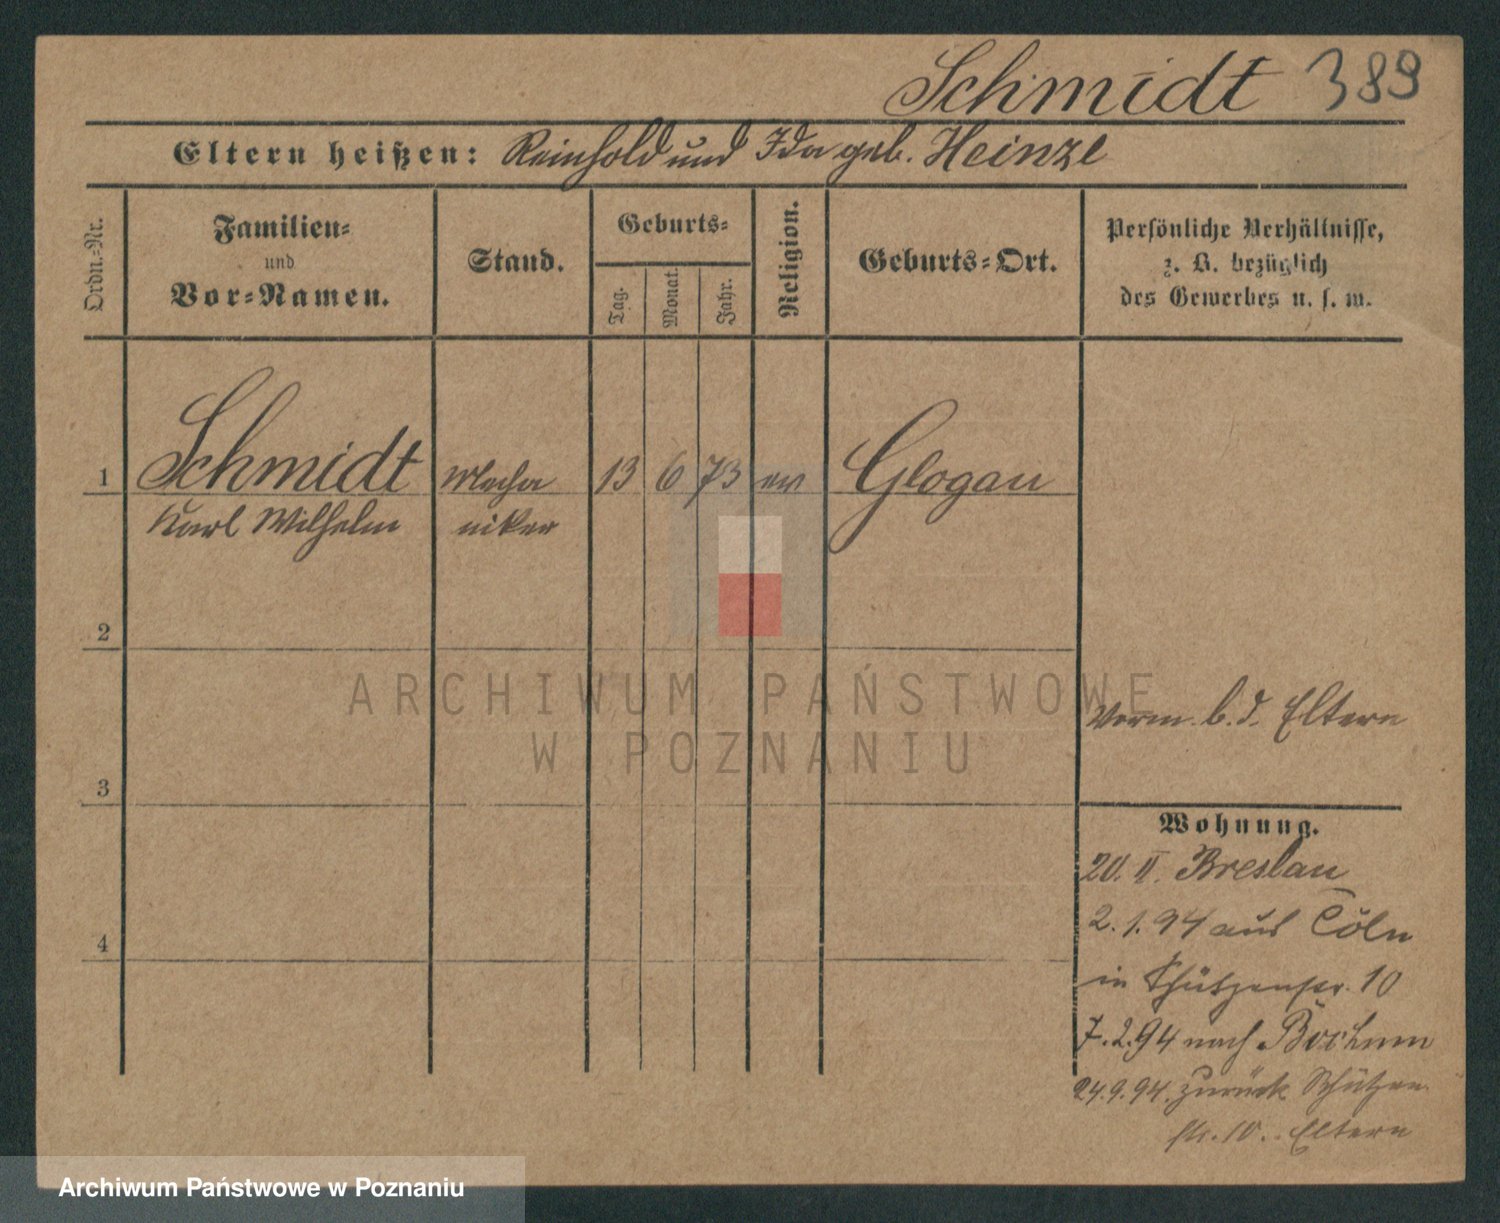 Schmidt 389
Eltern heißen: Reinhold und Ida geb. Heinze
Ordn.=Nr.
Familien=
und
Vor=Namen.
Stand.
Geburts=
Tag.
Monat.
Jahr.
Religion.
Geburts=Ort.
Persönliche Verhältnisse,
z. B. bezüglich
des Gewerbes u. s. w.
1 Schmidt Mecha 13 6 73 ev Glogau
Karl Wilhelm niker
2
3
4
Vorm. b. d. Eltern
Wohnung.
20. II. Breslau
2. 1. 94 aus Cöln
in Schützenstr. 10
7. 2. 94 nach Bochum
24. 9. 94. zurück Schützen
str. 10. Eltern
ARCHIWUM PAŃSTWOWE
W POZNANIU
Archiwum Państwowe w Poznaniu